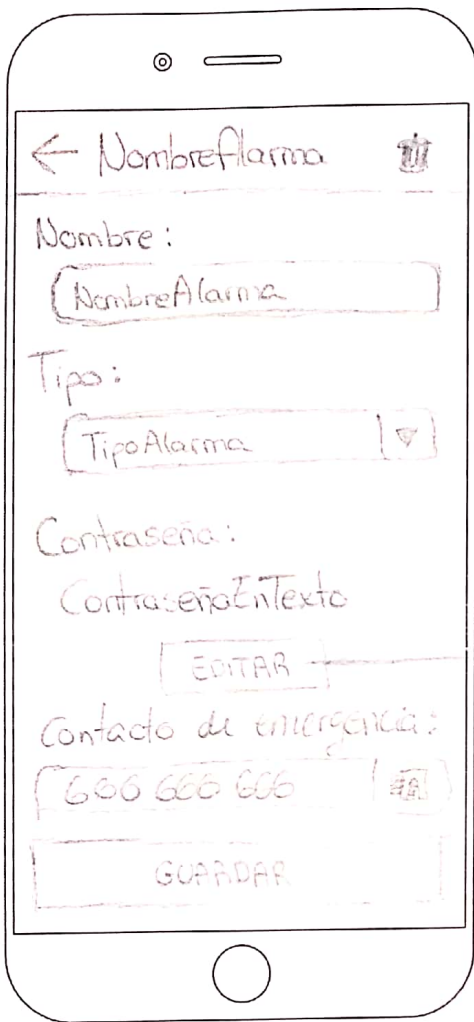 ← NombreAlarma
Nombre:
NombreAlarma
Tipo:
TipoAlarma
Contraseña:
ContraseñaEnTexto
EDITAR
Contacto de emergencia:
666 666 666
GUARDAR